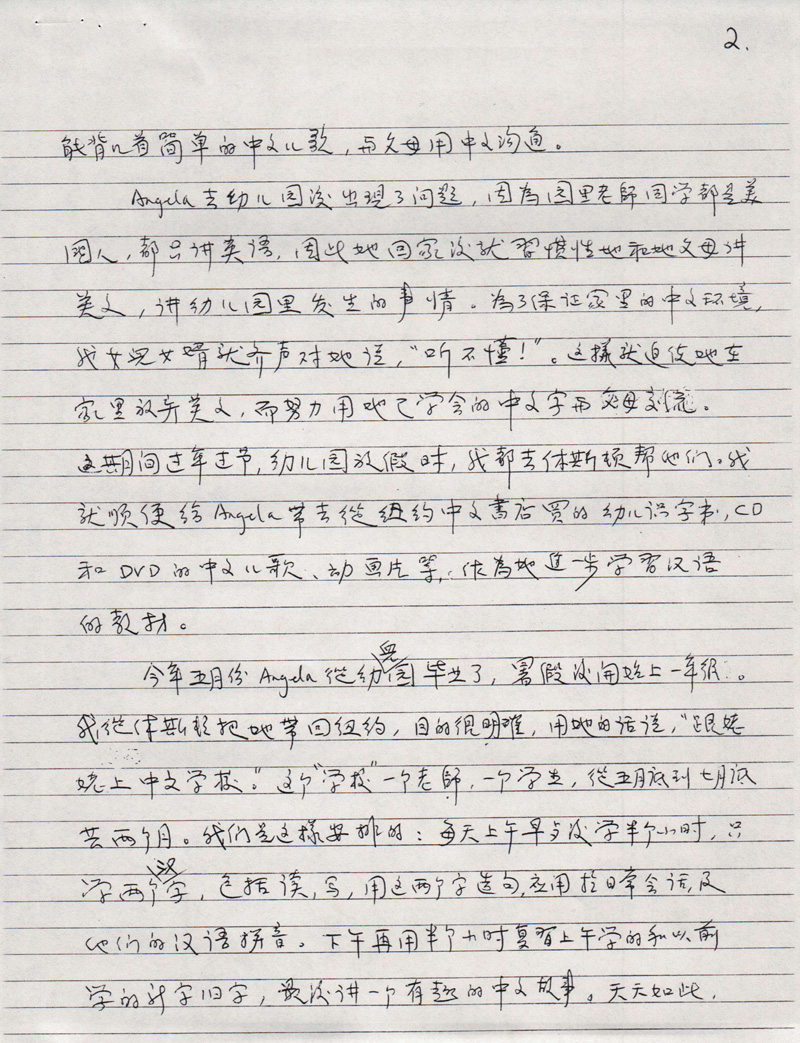 2.
能背几首简单的中文儿歌，与父母用中文沟通。
Angela去幼儿园后出现了问题，因為园里老師同学都是美
国人，都只讲英语，因此她回家后就習慣性地和她父母讲
英文，讲幼儿园里发生的事情。為了保证家里的中文环境，
我女兒女婿就齐声对她说，“听不懂！”。这樣就迫使她在
家里放弃英文，而努力用她已学会的中文字与父母交流。
这期间过年过节，幼儿园放假时，我都去休斯顿帮他们。我
就順便给Angela带去從纽约中文書店買的幼儿识字书，CD
和DVD的中文儿歌、动画片等，作為她進一步学習汉语
的教材。
今年五月份Angela從幼兒园毕业了，暑假後開始上一年级。
我從休斯顿把她带回纽约，目的很明確，用她的话说，“跟姥
姥上中文学校。”这个“学校”一个老師，一个学生，從五月底到七月底
共两个月。我们是这樣安排的：每天上午早点后学半个小时，只
学两个汉字，包括读，写，用这两个字造句，应用於日常会话，及
他们的汉语拼音。下午再用半个小时复習上午学的和以前
学的新字旧字，最後讲一个有趣的中文故事。天天如此，